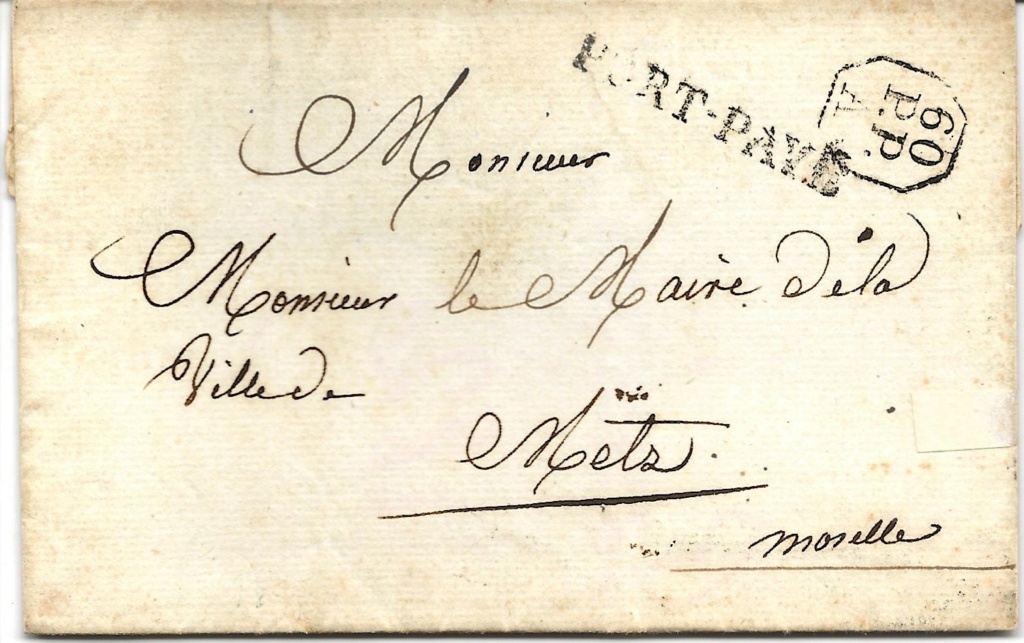 PORT-PAYÉ
60
P.P.
A
Monsieur
Monsieur le Maire de la
Ville de
Metz
moselle